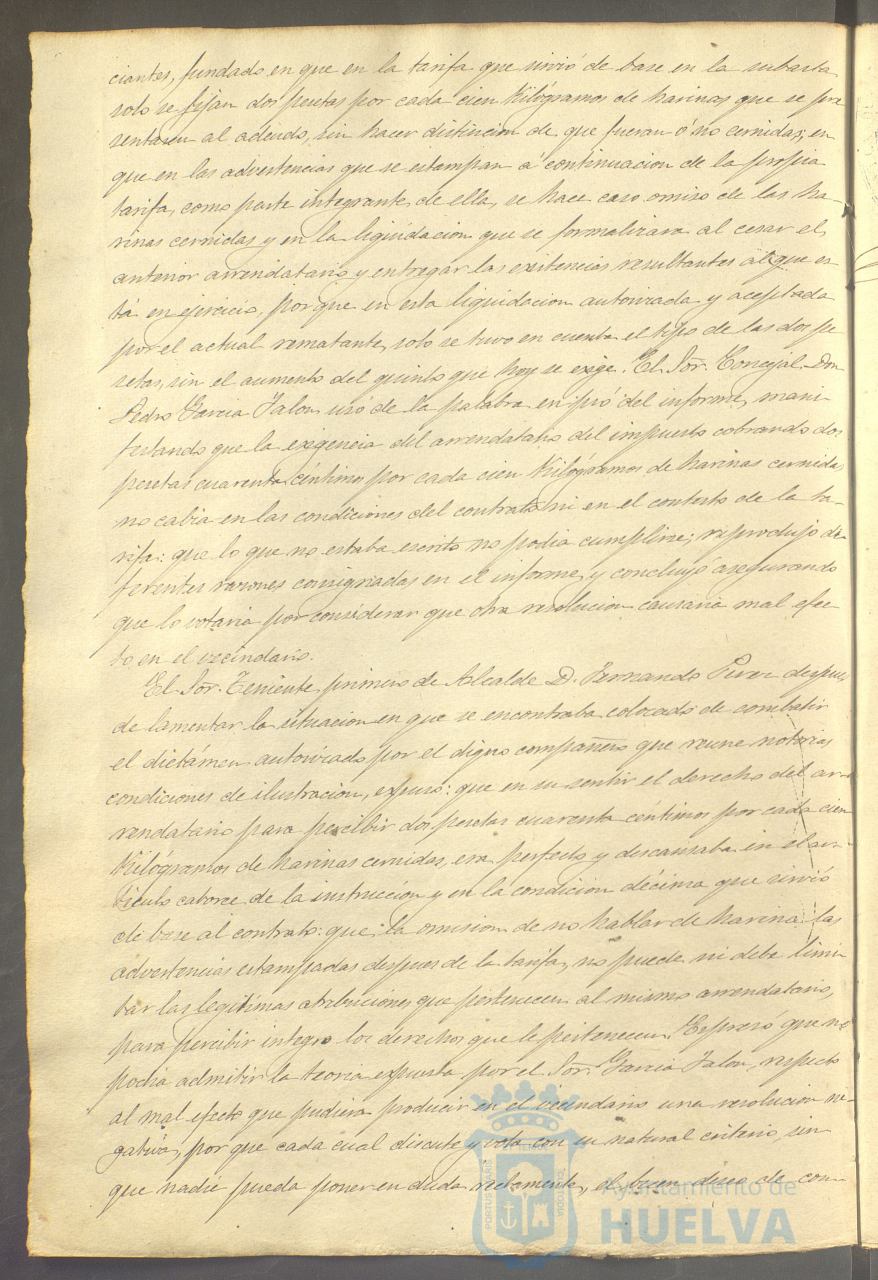 ciantes, fundado en que en la tarifa que sirvió de base en la subasta
solo se fijan dos pesetas por cada cien Kilógramos de harinas que se pre
sentaren al adeudo, sin hacer distincion de que fueran ó no cernidas; en
que en las advertencias que se estampan á continuacion de la propia
tarifa, como parte integrante de ella, se hace caso omiso de las ha-
rinas cernidas y en la liquidacion que se formalizara al cesar el
anterior arrendatario y entregar las existencias resultantes al que es-
tá en ejercicio, porque en esta liquidacion autorizada y aceptada
por el actual rematante, solo se tuvo en cuenta el tipo de las dos pe
setas, sin el aumento del quinto que hoy se exige. El Sor. Concejal Don
Pedro Garcia Jalon usó de la palabra en pró del informe, mani
festando que la exigencia del arrendatario del impuesto cobrando dos
pesetas cuarenta céntimos por cada cien Kilógramos de harinas cernidas
no cabia en las condiciones del contrato ni en el contesto de la ta-
rifa: que lo que no estaba escrito no podia cumplirse; reprodujo di-
ferentes razones consignadas en el informe, y concluyó asegurando
que lo votaria por considerar que otra resolucion causaria mal efec-
to en el vecindario.
El Sor. Teniente primero de Alcalde D. Fernando Perez despues
de lamentar la situacion en que se encontraba colocado de combatir
el dictámen autorizado por el digno compañero que reune notorias
condiciones de ilustracion, expuso: que en su sentir el derecho del ar-
rendatario para percibir dos pesetas cuarenta céntimos por cada cien
Kilógramos de harinas cernidas, era perfecto y descansaba en el ar-
tículo catorce de la instruccion y en la condicion décima que sirvió
de base al contrato: que la omision de no hablar de harina las
advertencias estampadas despues de la tarifa, no puede ni debe limi-
tar las legítimas atribuciones que pertenecen al mismo arrendatario,
para percibir integro los derechos que le pertenecen. Espresó que no
podia admitir la teoria expuesta por el Sor. Garcia Jalon, respecto
al mal efecto que pudiera producir en el vecindario una resolucion ne-
gativa, por que cada cual discute y vota con su natural criterio, sin
que nadie pueda poner en duda rectamente, el buen deseo de con-
PORTUS MARIS
ET TERRÆ
CUSTODIA
Ayuntamiento de
HUELVA